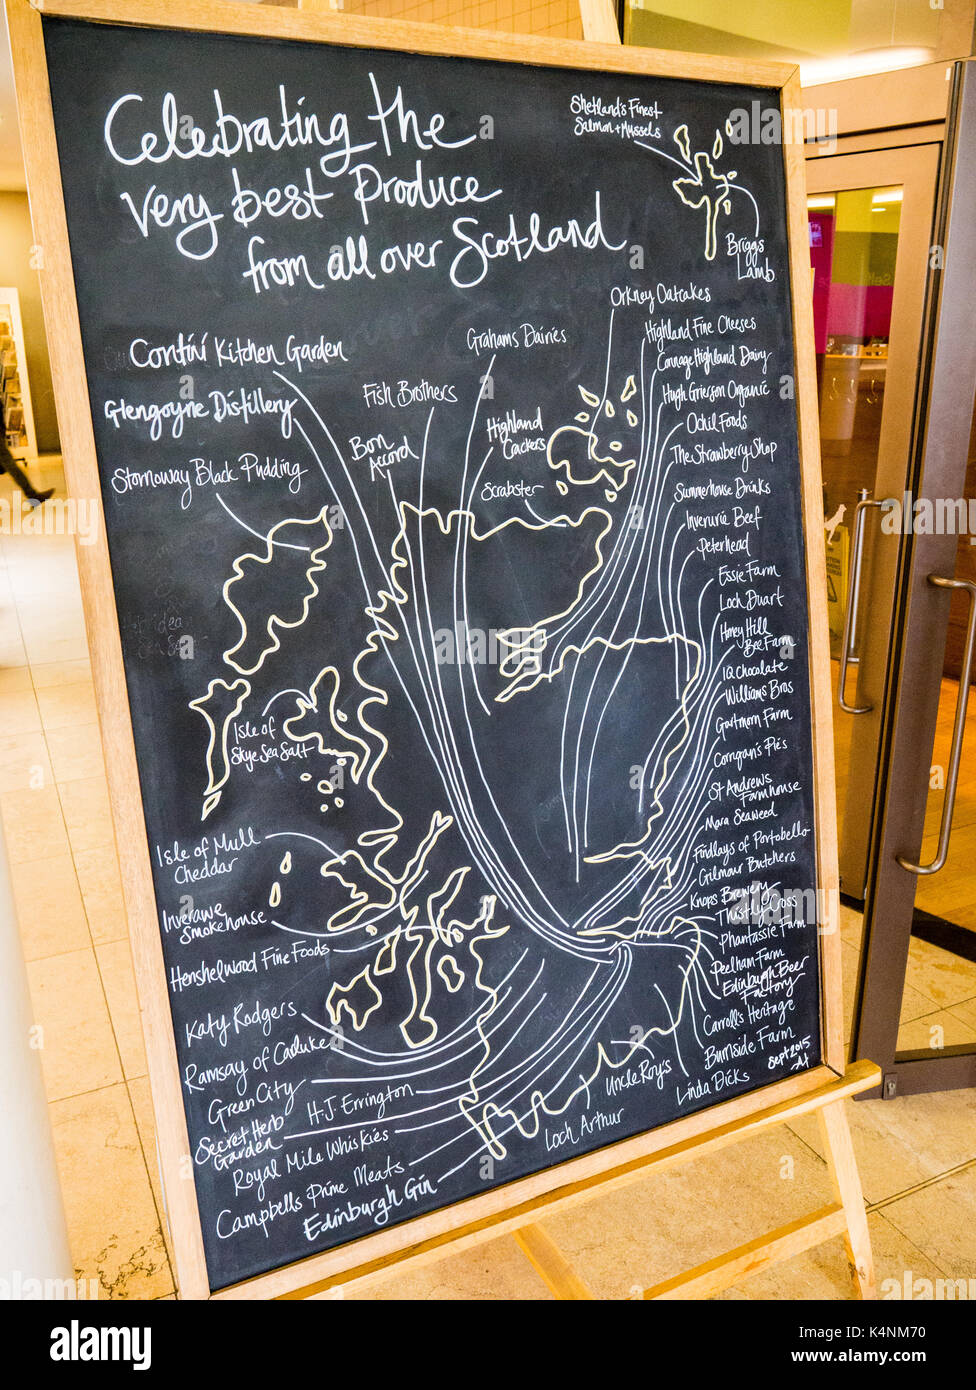 Celebrating the
very best Produce
from all over Scotland
Shetland's Finest
Salmon + Mussels
Briggs
Lamb
Orkney Oatcakes
Contini Kitchen Garden
Grahams Dairies
Highland Fine Cheeses
Connage Highland Dairy
Glengoyne Distillery
Fish Brothers
Hugh Grierson Organic
Bon
Accord
Highland
Crackers
Ochil Foods
Stornoway Black Pudding
The Strawberry Shop
Scrabster
Summerhouse Drinks
Inverurie Beef
Peterhead
Essie Farm
Loch Duart
Honey Hill
Bee Farm
IQ Chocolate
Williams Bros
Isle of
Skye Sea Salt
Gartmorn Farm
Corrigan's Pie's
St Andrews
Farmhouse
Mara Seaweed
Isle of Mull
Cheddar
Findlays of Portobello
Gilmour Butchers
Inverawe
Smokehouse
Knops Brewery
Thistly Cross
Phantassie Farm
Henshelwood Fine Foods
Peelham Farm
Edinburgh Beer
Factory
Katy Rodgers
Carroll's Heritage
Ramsay of Carluke
Burnside Farm
Sept 2015
Green City
H.J. Errington
Uncle Roy's
Linda Dicks
Secret Herb
Garden
Royal Mile Whiskies
Loch Arthur
Campbells Prime Meats
Edinburgh Gin
alamy
Image ID: K4NM70
www.alamy.com